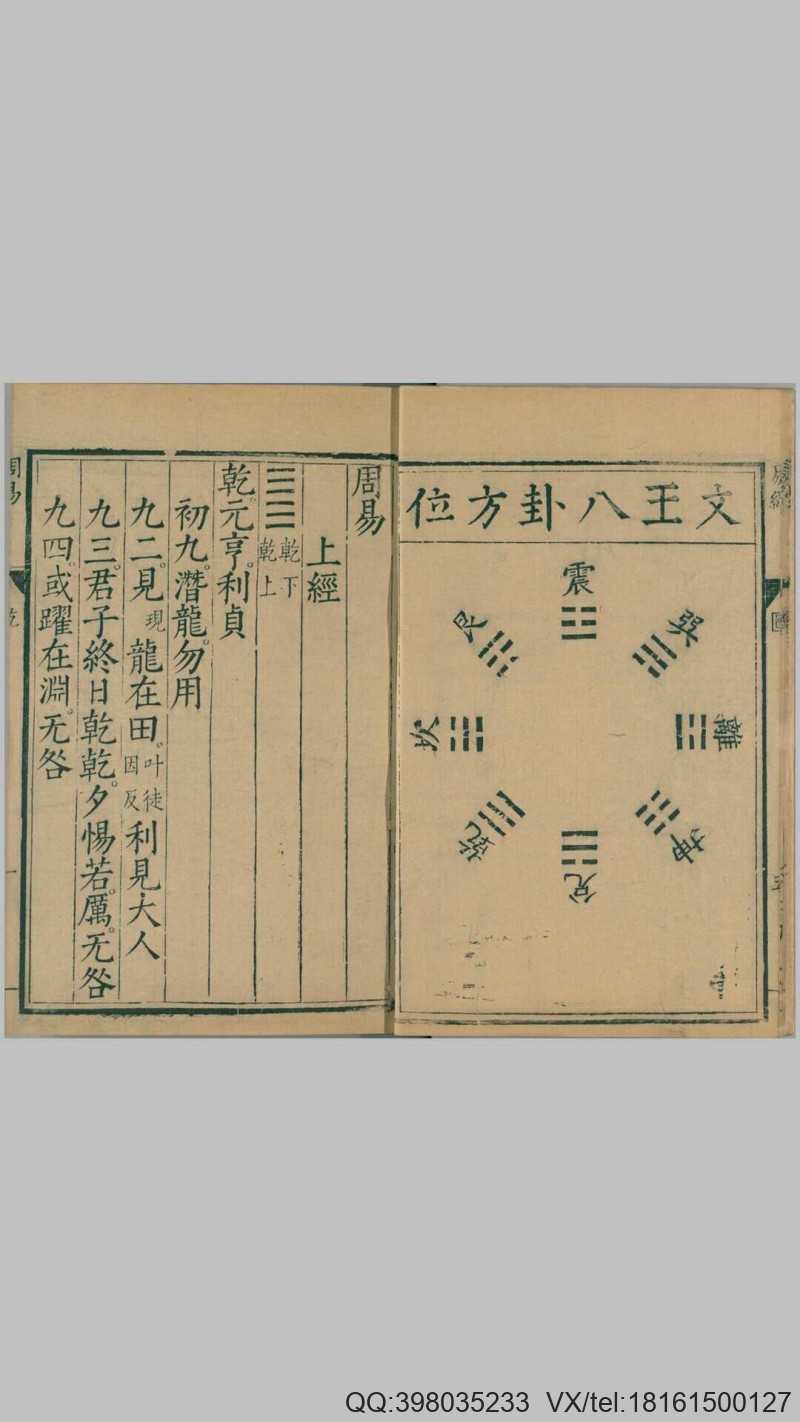 文王八卦方位
震
巽
離
坤
兌
乾
坎
艮
圖
周易
上經
乾下
乾上
乾元亨利貞
初九潛龍勿用
九二見現龍在田叶徒因反利見大人
九三君子終日乾乾夕惕若厲无咎
九四或躍在淵无咎
周易
乾
QQ:398035233 VX/tel:18161500127